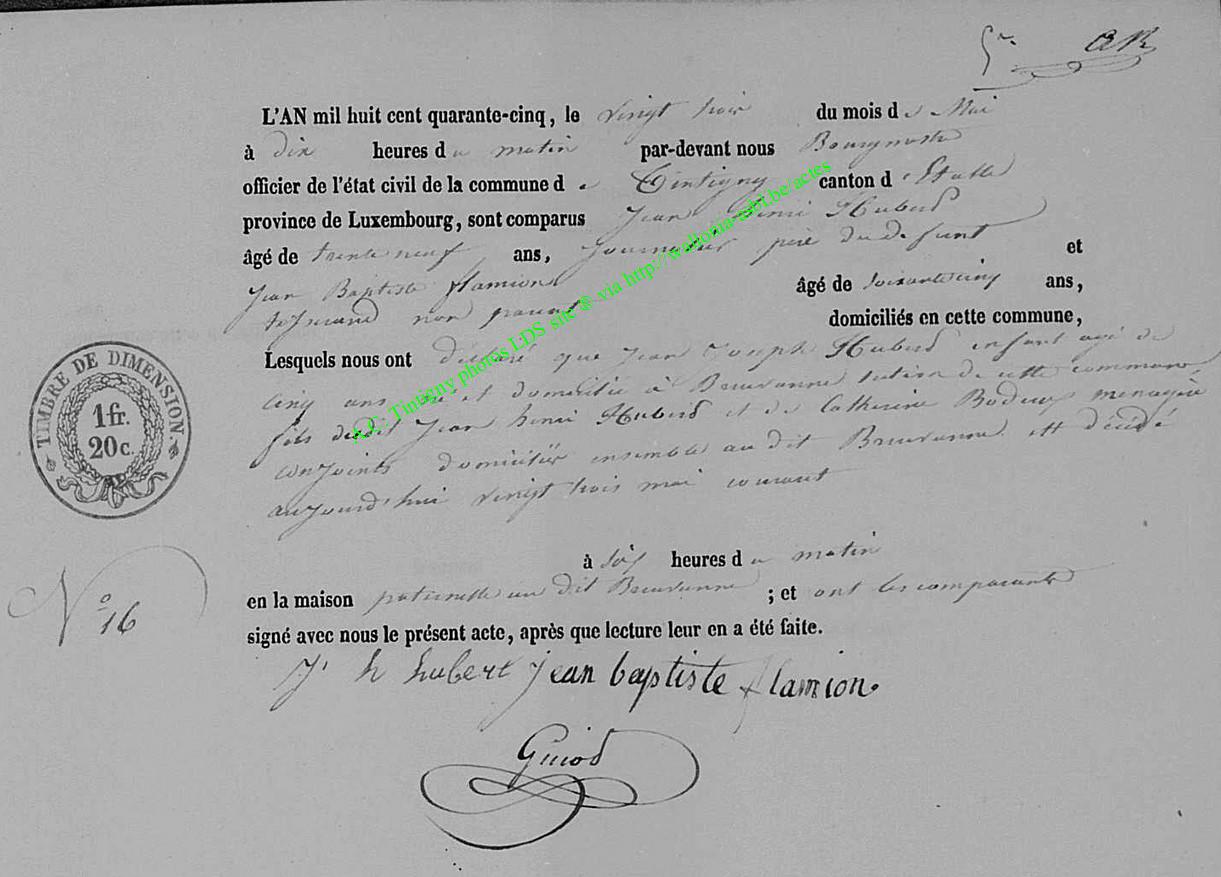 5me AR
L'AN mil huit cent quarante-cinq, le vingt trois du mois de Mai
à dix heures du matin par-devant nous Bourgmestre
officier de l'état civil de la commune de Tintigny canton d'Etalle
province de Luxembourg, sont comparus Jean henri Hubert
âgé de trente neuf ans, Journalier père du defunt et
Jean Baptiste flamion âgé de soixante cinq ans,
non parent domiciliés en cette commune,
Lesquels nous ont déclaré que Jean Joseph Hubert enfant agé de
cinq ans né et domicilié à Breuvanne section de cette commune,
fils dudit Jean henri Hubert et de Catherine menagère
conjoints domiciliés ensemble au dit Breuvanne est décédé
aujourd'hui vingt trois mai courant
à six heures du matin
en la maison paternelle au dit Breuvanne ; et ont les comparants
signé avec nous le présent acte, après que lecture leur en a été faite.
J. h hubert Jean baptiste flamion.
Guiod
TIMBRE DE DIMENSION.
1 fr.
20 c.
N° 16
A.C. Tintigny photos LDS site ® via http://wallonia-asbl.be/actes